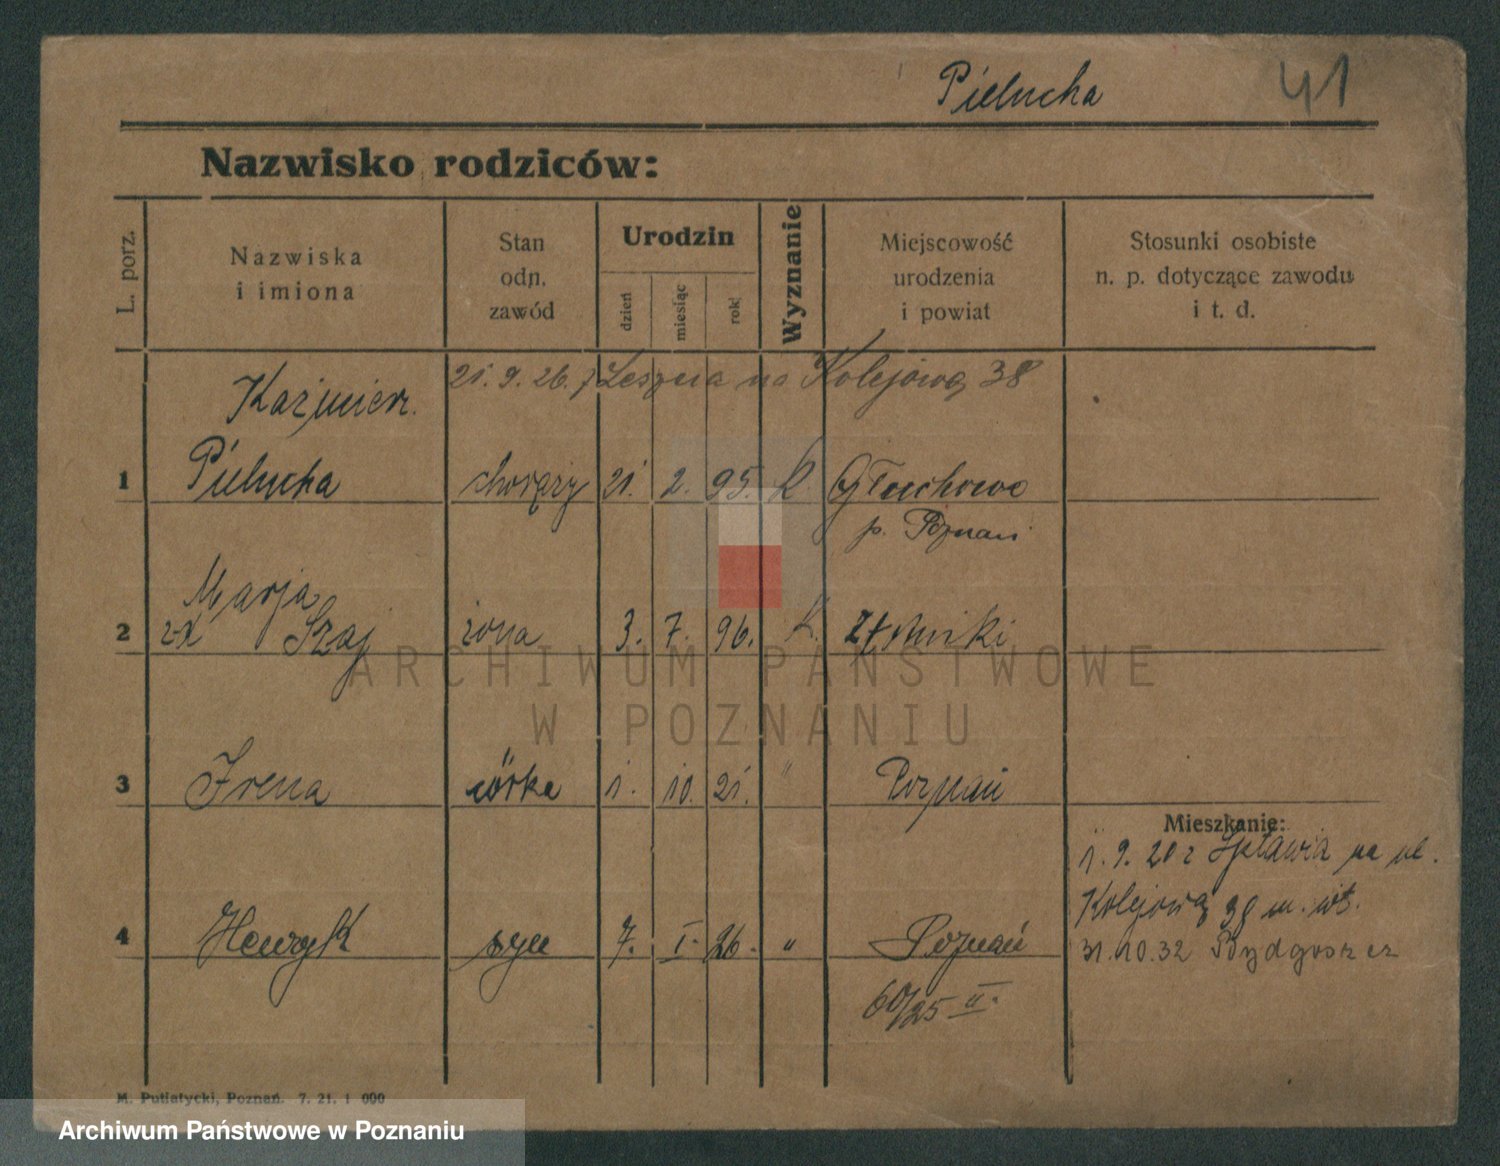 Pielucha 41
Nazwisko rodziców:
L. porz.
Nazwiska
i imiona
Stan
odn.
zawód
Urodzin
dzień
miesiąc
rok
Wyznanie
Miejscowość
urodzenia
i powiat
Stosunki osobiste
n. p. dotyczące zawodu
i t. d.
21. 9. 26. z Leszna na Kolejową 38
Kaźmierz
1 Pielucha chorąży 21. 2. 95. K. Głuchowo
p. Poznań
Marja
2 z d Szaj żona 3. 7. 96. K. Złotniki
ARCHIWUM PAŃSTWOWE
W POZNANIU
3 Irena córka 1. 10. 21. " Poznań
Mieszkanie:
1. 9. 20 z Spławia na ul.
Kolejową 38 m. wł.
4 Henryk syn 7. I. 26. " Poznań
31. 10. 32 Bydgoszcz
60/25 II.
M. Putiatycki, Poznań. 7. 21. 1 000
Archiwum Państwowe w Poznaniu